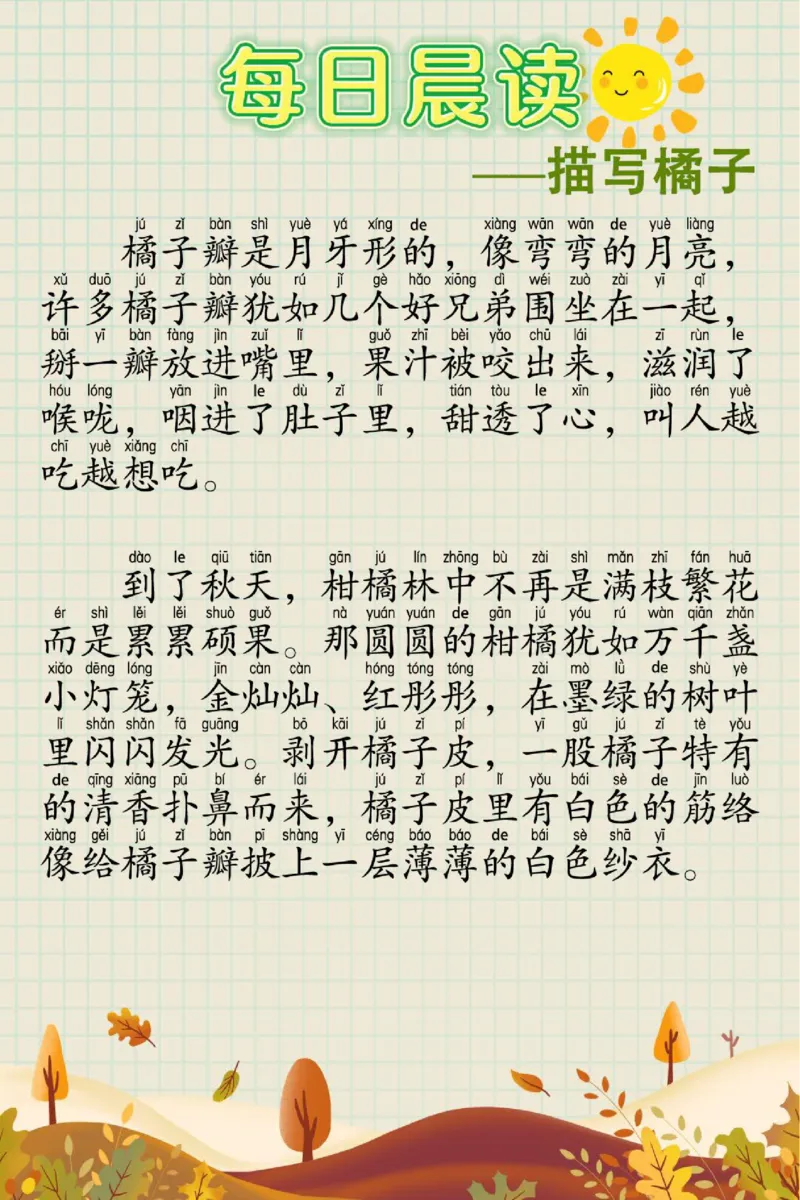 每日晨读
——描写橘子
jú zǐ bàn shì yuè yá xíng de xiàng wān wān de yuè liàng
橘子瓣是月牙形的，像弯弯的月亮，
xǔ duō jú zǐ bàn yóu rú jǐ gè hǎo xiōng dì wéi zuò zài yī qǐ
许多橘子瓣犹如几个好兄弟围坐在一起，
bāi yī bàn fàng jìn zuǐ lǐ guǒ zhī bèi yǎo chū lái zī rùn le
掰一瓣放进嘴里，果汁被咬出来，滋润了
hóu lóng yān jìn le dù zǐ lǐ tián tòu le xīn jiào rén yuè
喉咙，咽进了肚子里，甜透了心，叫人越
chī yuè xiǎng chī
吃越想吃。
dào le qiū tiān gān jú lín zhōng bù zài shì mǎn zhī fán huā
到了秋天，柑橘林中不再是满枝繁花
ér shì lěi lěi shuò guǒ nà yuán yuán de gān jú yóu rú wàn qiān zhǎn
而是累累硕果。那圆圆的柑橘犹如万千盏
xiǎo dēng lóng jīn càn càn hóng tóng tóng zài mò lǜ de shù yè
小灯笼，金灿灿、红彤彤，在墨绿的树叶
lǐ shǎn shǎn fā guāng bō kāi jú zǐ pí yī gǔ jú zǐ tè yǒu
里闪闪发光。剥开橘子皮，一股橘子特有
de qīng xiāng pū bí ér lái jú zǐ pí lǐ yǒu bái sè de jīn luò
的清香扑鼻而来，橘子皮里有白色的筋络
xiàng gěi jú zǐ bàn pī shàng yī céng báo báo de bái sè shā yī
像给橘子瓣披上一层薄薄的白色纱衣。